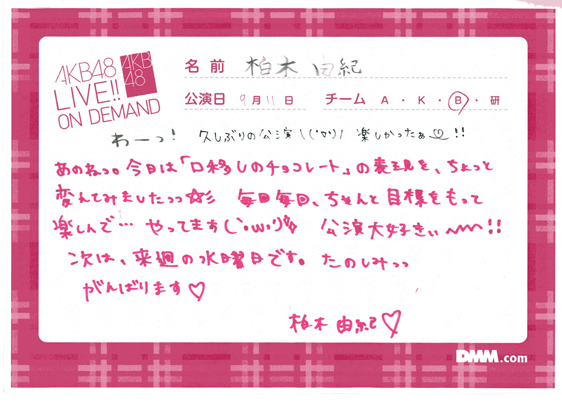 AKB48
LIVE!!
ON DEMAND
AKB
48
名前 柏木 由紀
公演日 9月11日 チーム A・K・B・研
わーっ! 久しぶりの公演\('◇')/ 楽しかったぁ♡!!
あのねっ。今日は「口移しのチョコレート」の表現を、ちょっと
変えてみましたっっ☆彡 毎回毎回、ちゃんと目標をもって
楽しんで… やってます(`・ω・´) 公演大好きぃ〜!!
次は、来週の水曜日です。たのしみっっ
がんばります♡
柏木 由紀♡
DMM.com